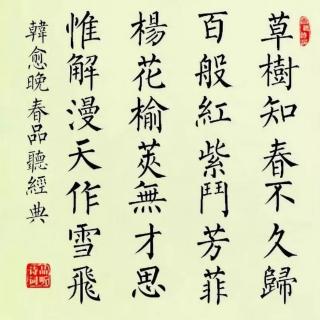 草樹知春不久歸
百般紅紫鬥芳菲
楊花榆莢無才思
惟解漫天作雪飛
韓愈晚春品聽經典